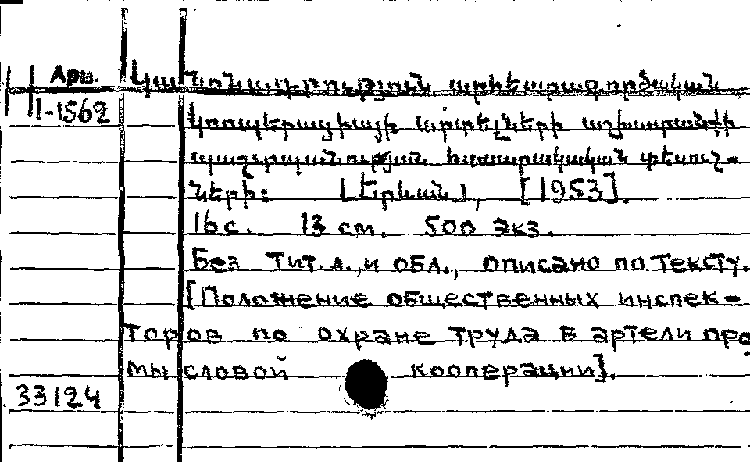 Арм.
1-1562
Կանոնադրություն արհեստագործական
կոոպերացիայի արտելների աշխատանքի
պաշտպանության հասարակական տեսուչ-
ների: [Երևան], [1953].
16 с. 13 см. 500 экз.
Без тит. л. и обл., описано по тексту.
[Положение общественных инспек-
торов по охране труда в артели про
мысловой кооперации].
33124